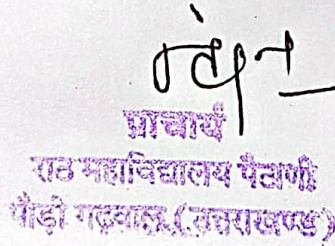 प्राचार्य
राठ महाविद्यालय पैठाणी
पौड़ी गढ़वाल (उत्तराखण्ड)